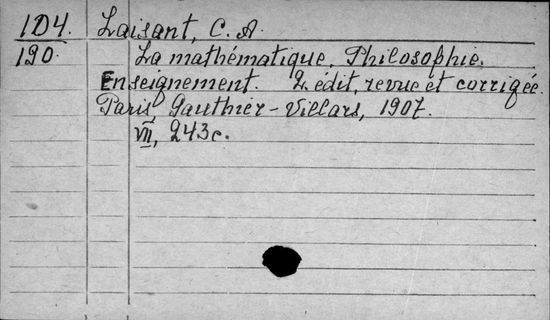 1D4. Laisant, C. A.
190. La mathématique. Philosophie.
Enseignement. 2 édit, revue et corrigée.
Paris, Gauthier-Villars, 1907.
VII, 243c.